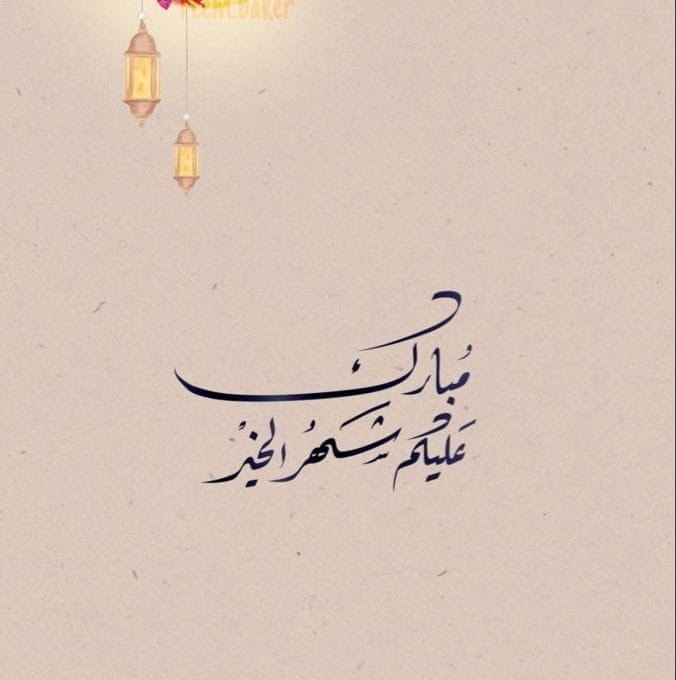 reem.baker
مُبارك
عَليكُم شَهرُ الخيْر